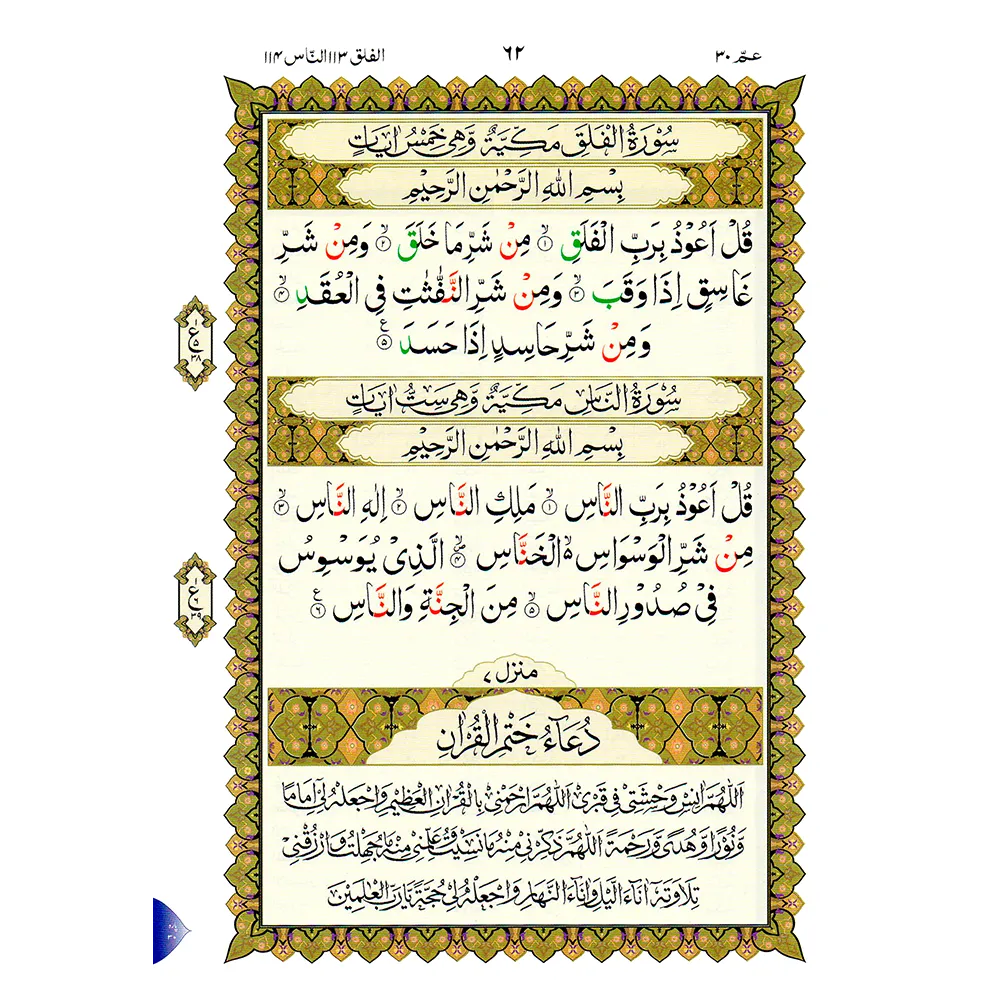 عـمّ ٣٠
٦٢
الفلق ١١٣ النّاس ١١٤
سُوْرَةُ الْفَلَقِ مَكِّيَّةٌ وَّهِىَ خَمْسُ اٰيَاتٍ
بِسْمِ اللّٰهِ الرَّحْمٰنِ الرَّحِيْمِ
قُلْ اَعُوْذُ بِرَبِّ الْفَلَقِ ۙ﴿١﴾ مِنْ شَرِّ مَا خَلَقَ ۙ﴿٢﴾ وَمِنْ شَرِّ
غَاسِقٍ اِذَا وَقَبَ ۙ﴿٣﴾ وَمِنْ شَرِّ النَّفّٰثٰتِ فِى الْعُقَدِ ۙ﴿٤﴾
وَمِنْ شَرِّ حَاسِدٍ اِذَا حَسَدَ ﴿٥﴾ ع
ع
١
٥
٣٨
سُوْرَةُ النَّاسِ مَكِّيَّةٌ وَّهِىَ سِتُّ اٰيَاتٍ
بِسْمِ اللّٰهِ الرَّحْمٰنِ الرَّحِيْمِ
قُلْ اَعُوْذُ بِرَبِّ النَّاسِ ۙ﴿١﴾ مَلِكِ النَّاسِ ۙ﴿٢﴾ اِلٰهِ النَّاسِ ۙ﴿٣﴾
مِنْ شَرِّ الْوَسْوَاسِ ۵ الْخَنَّاسِ ﴿٤﴾ الَّذِىْ يُوَسْوِسُ
فِىْ صُدُوْرِ النَّاسِ ۙ﴿٥﴾ مِنَ الْجِنَّةِ وَالنَّاسِ ﴿٦﴾ ع
ع
١
٦
٣٩
منزل ٧
دُعَآءُ خَتْمِ الْقُرْاٰنِ
اَللّٰهُمَّ اٰنِسْ وَحْشَتِىْ فِىْ قَبْرِىْ اَللّٰهُمَّ ارْحَمْنِىْ بِالْقُرْاٰنِ الْعَظِيْمِ وَاجْعَلْهُ لِىْٓ اِمَامًا
وَّنُوْرًا وَّهُدًى وَّرَحْمَةً اَللّٰهُمَّ ذَكِّرْنِىْ مِنْهُ مَا نَسِيْتُ وَعَلِّمْنِىْ مِنْهُ مَا جَهِلْتُ وَارْزُقْنِىْ
تِلَاوَتَهٗ اٰنَآءَ الَّيْلِ وَاٰنَآءَ النَّهَارِ وَاجْعَلْهُ لِىْ حُجَّةً يَّا رَبَّ الْعٰلَمِيْنَ
پارہ
٣٠